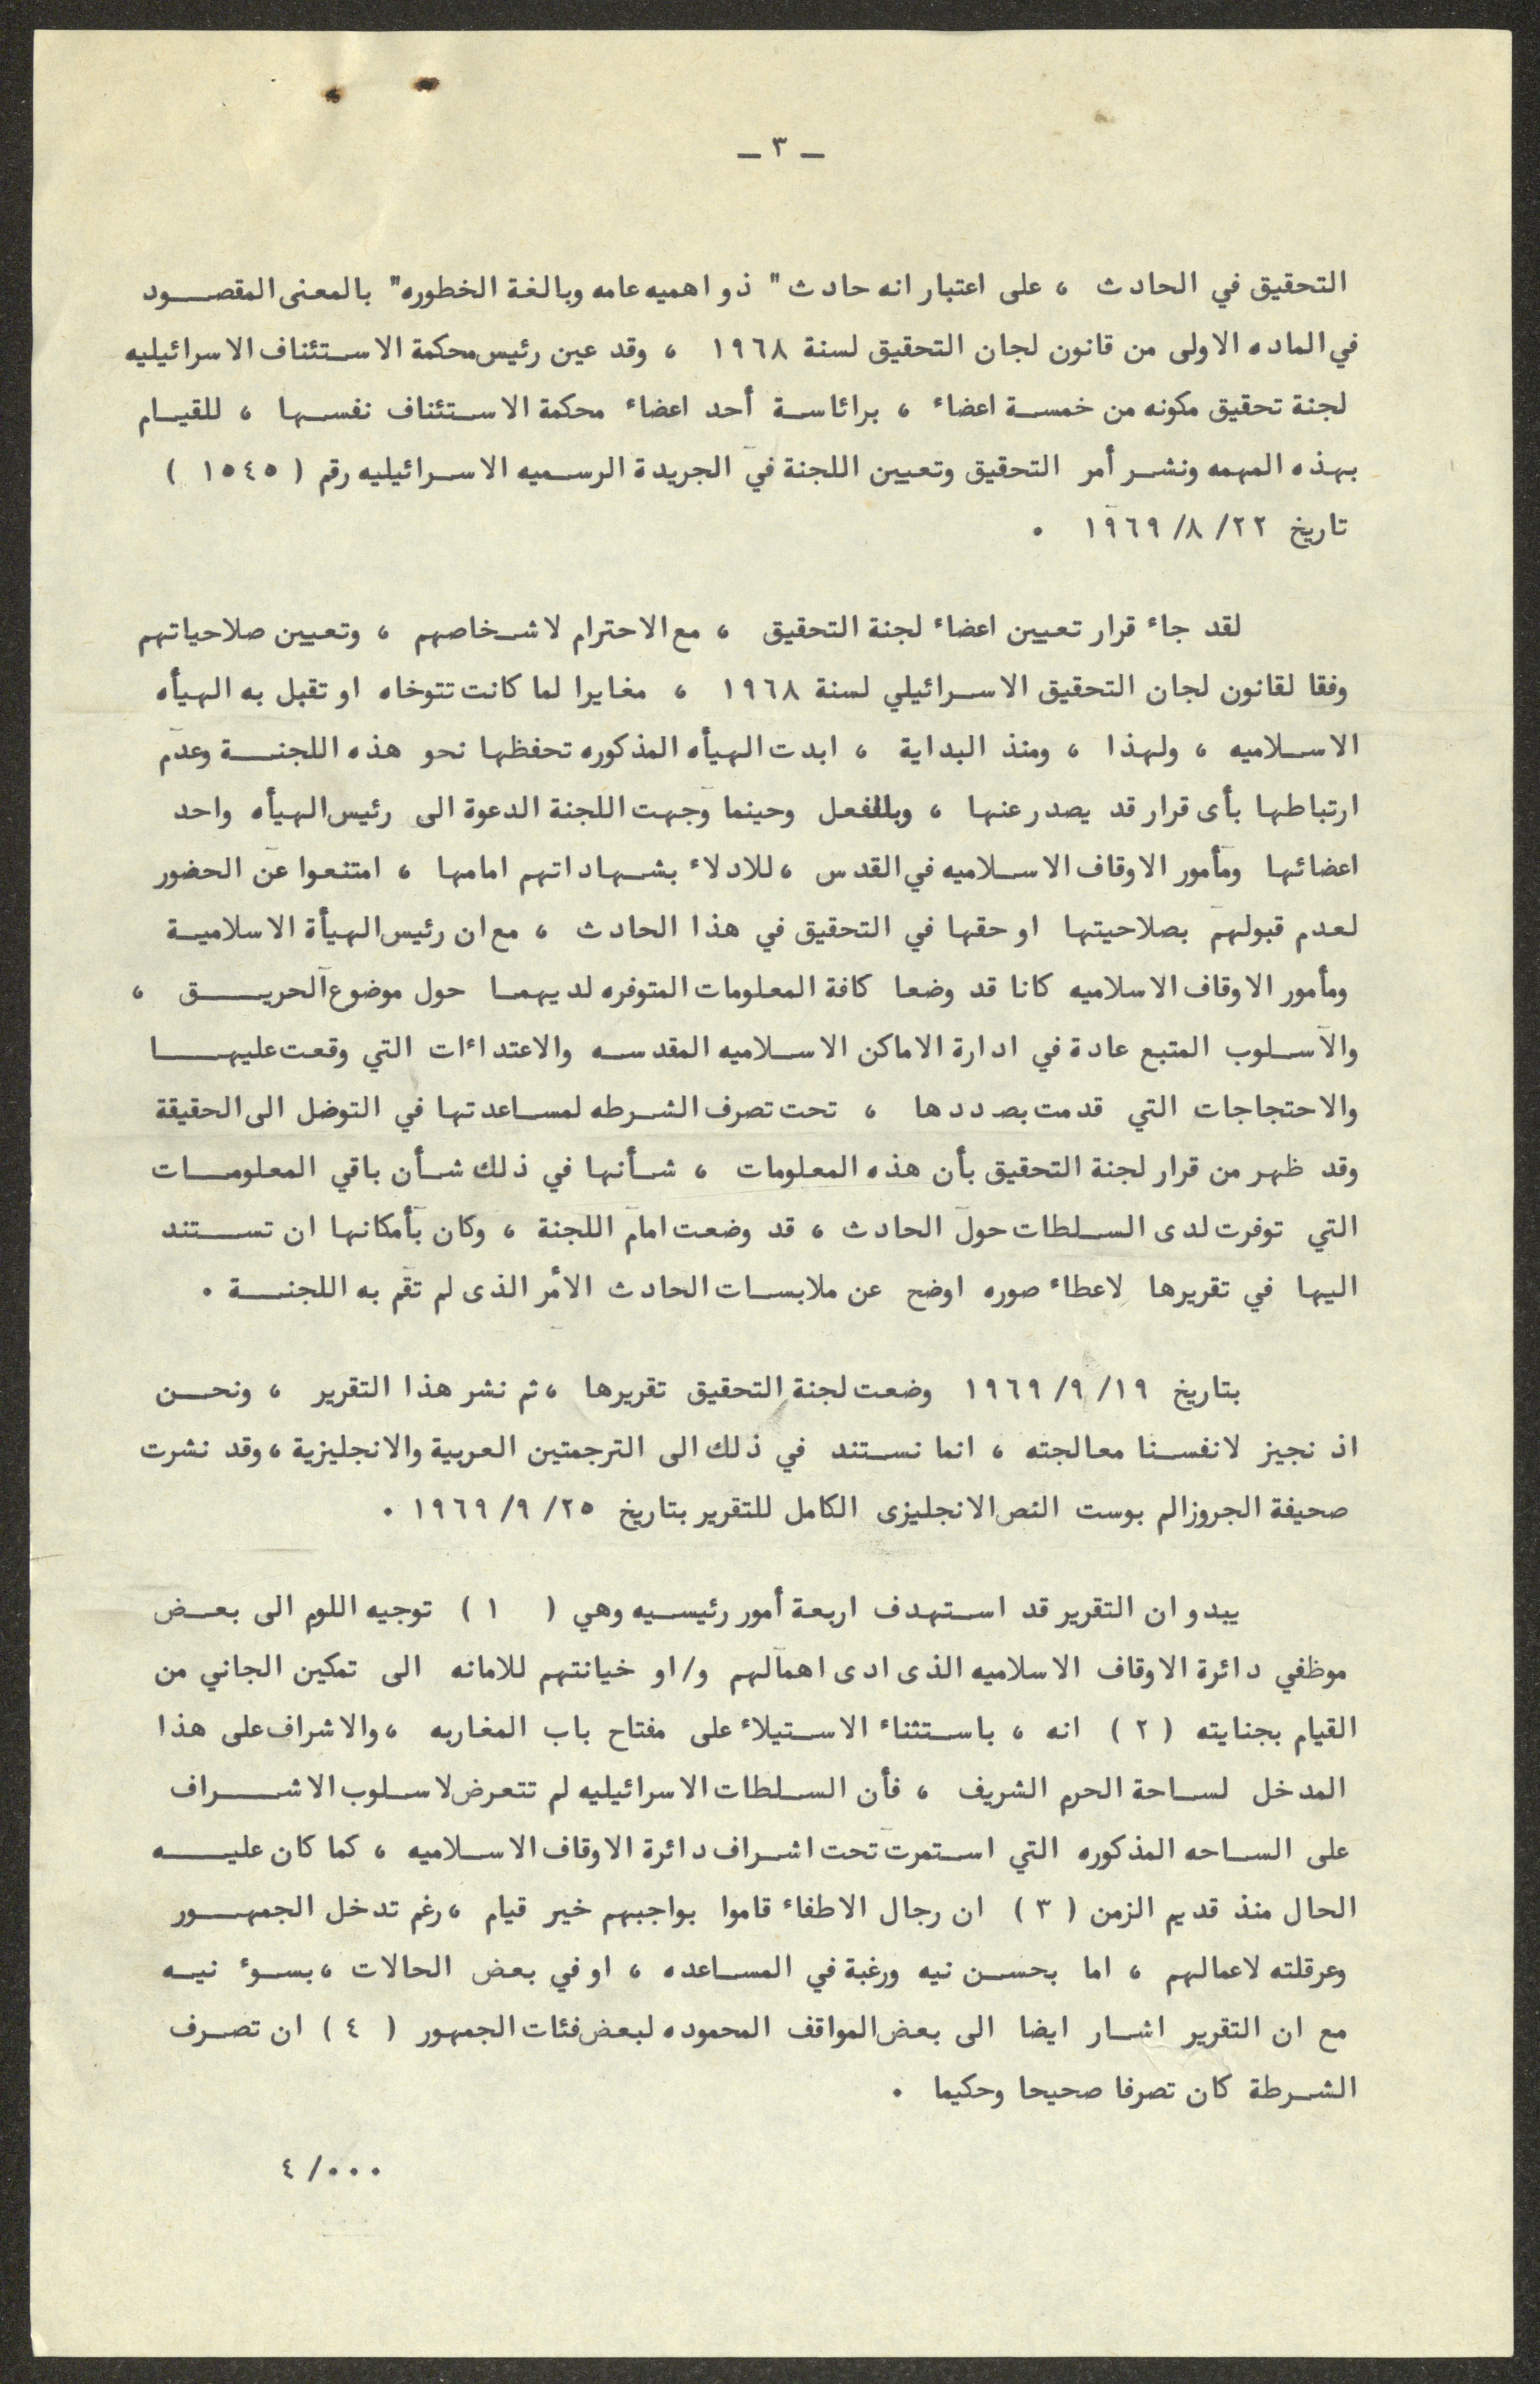 ـ ٣ ـ
التحقيق في الحادث ، على اعتبار انه حادث " ذو اهميه عامه وبالغة الخطوره" بالمعنى المقصود
في الماده الاولى من قانون لجان التحقيق لسنة ١٩٦٨ ، وقد عين رئيس محكمة الاستئناف الاسرائيليه
لجنة تحقيق مكونه من خمسة اعضاء ، برائاسة أحد اعضاء محكمة الاستئناف نفسها ، للقيام
بهذه المهمه ونشر أمر التحقيق وتعيين اللجنة في الجريدة الرسميه الاسرائيليه رقم ( ١٥٤٥ )
تاريخ ٢٢/ ٨/ ١٩٦٩ ٠
لقد جاء قرار تعيين اعضاء لجنة التحقيق ، مع الاحترام لاشخاصهم ، وتعيين صلاحياتهم
وفقا لقانون لجان التحقيق الاسرائيلي لسنة ١٩٦٨ ، مغايرا لما كانت تتوخاه او تقبل به الهيأه
الاسلاميه ، ولهذا ، ومنذ البداية ، ابدت الهيأه المذكوره تحفظها نحو هذه اللجنة وعدم
ارتباطها بأى قرار قد يصدر عنها ، وبالفعل وحينما وجهت اللجنة الدعوة الى رئيس الهيأه واحد
اعضائها ومأمور الاوقاف الاسلاميه في القدس ، للادلاء بشهاداتهم امامها ، امتنعوا عن الحضور
لعدم قبولهم بصلاحيتها او حقها في التحقيق في هذا الحادث ، مع ان رئيس الهيأة الاسلامية
ومأمور الاوقاف الاسلاميه كانا قد وضعا كافة المعلومات المتوفره لديهما حول موضوع الحريق ،
والآسلوب المتبع عادة في ادارة الاماكن الاسلاميه المقدسه والاعتداءات التي وقعت عليها
والاحتجاجات التي قدمت بصددها ، تحت تصرف الشرطه لمساعدتها في التوضل الى الحقيقة
وقد ظهر من قرار لجنة التحقيق بأن هذه المعلومات ، شأنها في ذلك شأن باقي المعلومات
التي توفرت لدى السلطات حول الحادث ، قد وضعت امام اللجنة ، وكان بأمكانها ان تستند
اليها في تقريرها لاعطاء صوره اوضح عن ملابسات الحادث الامر الذى لم تقم به اللجنة ٠
بتاريخ ١٩/ ٩/ ١٩٦٩ وضعت لجنة التحقيق تقريرها ، ثم نشر هذا التقرير ، ونحن
اذ نجيز لانفسنا معالجته ، انما نستند في ذلك الى الترجمتين العربية والانجليزية ، وقد نشرت
صحيفة الجروزالم بوست النص الانجليزى الكامل للتقرير بتاريخ ٢٥/ ٩/ ١٩٦٩ ٠
يبدو ان التقرير قد استهدف اربعة أمور رئيسيه وهي ( ١ ) توجيه اللوم الى بعض
موظفي دائرة الاوقاف الاسلاميه الذى ادى اهمالهم و/او خيانتهم للامانه الى تمكين الجاني من
القيام بجنايته ( ٢ ) انه ، باستثناء الاستيلاء على مفتاح باب المغاربه ، والاشراف على هذا
المدخل لساحة الحرم الشريف ، فأن السلطات الاسرائيليه لم تتعرض لاسلوب الاشراف
على الساحه المذكوره التي استمرت تحت اشراف دائرة الاوقاف الاسلاميه ، كما كان عليه
الحال منذ قديم الزمن ( ٣ ) ان رجال الاطفاء قاموا بواجبهم خير قيام ، رغم تدخل الجمهور
وعرقلته لاعمالهم ، اما بحسن نيه ورغبة في المساعده ، او في بعض الحالات ، بسوء نيه
مع ان التقرير اشار ايضا الى بعض المواقف المحموده لبعض فئات الجمهور ( ٤ ) ان تصرف
الشرطة كان تصرفا صحيحا وحكيما ٠
٠٠٠/ ٤